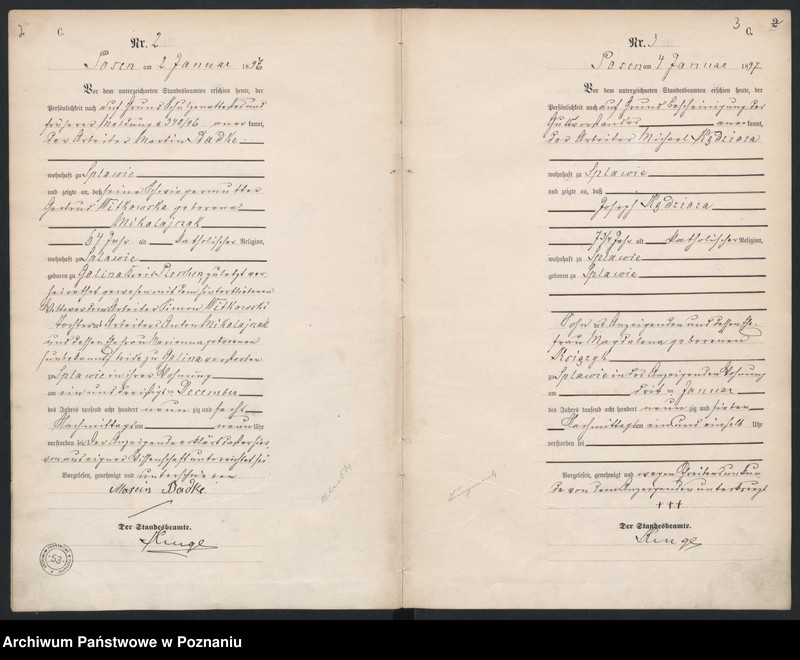 2
C.
Nr. 2
Posen am 2 Januar 1896
Vor dem unterzeichneten Standesbeamten erschien heute, der
Persönlichkeit nach auf Grund
früherer Meldung anerkannt,
der Arbeiter Martin Dadke
wohnhaft zu Splawie
und zeigte an, daß seine Schwiegermutter
Gertrud Witkowska geborene
Mikolajczak
67 Jahr alt katholischer Religion,
wohnhaft zu Splawie
geboren zu Galina Kreis Pleschen, zuletzt ver
heirathet gewesen mit dem hinterbliebenen
Wittwer dem Arbeiter Simon Witkowski
Tochter des Arbeiters Anton Mikolajczak
und dessen Ehefrau Marianna geborenen
(unbekannt) beide zu Galina verstorben
zu Splawie in ihrer Wohnung
am ein und dreißigsten December
des Jahres tausend acht hundert neunzig und sechs
Nachmittags um neun Uhr
verstorben sei. Der Anzeigende erklärt, daß er hier
von aus eigener Wissenschaft unterrichtet sei
Vorgelesen, genehmigt und unterschrieben
Marcin Dadke
Der Standesbeamte.
Kruge
53
3
2
C.
Nr. 3
Posen am 4 Januar 1897
Vor dem unterzeichneten Standesbeamten erschien heute, der
Persönlichkeit nach auf Grund Bescheinigung des
Gutsvorstandes anerkannt,
der Arbeiter Michael Kędziora
wohnhaft zu Splawie
und zeigte an, daß
Joseph Kędziora
Jahr alt katholischer Religion,
wohnhaft zu Splawie
geboren zu Splawie
Sohn des Anzeigenden und dessen Ehe-
frau Magdalena geborenen
zu Splawie in des Anzeigenden Wohnung
am dritten Januar
des Jahres tausend acht hundert neunzig und sieben
Nachmittags um ein und einhalb Uhr
verstorben sei
Vorgelesen, genehmigt und wegen Schreibensunkun
de von dem Anzeigenden unterkreuzt
+++
Der Standesbeamte.
Kruge
Archiwum Państwowe w Poznaniu